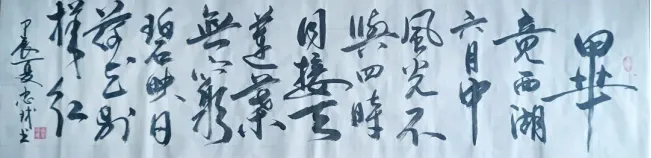 畢
竟西湖
六月中
風光不
與四時
同接天
蓮葉
無窮
碧映日
荷花别
樣红
甲辰夏书